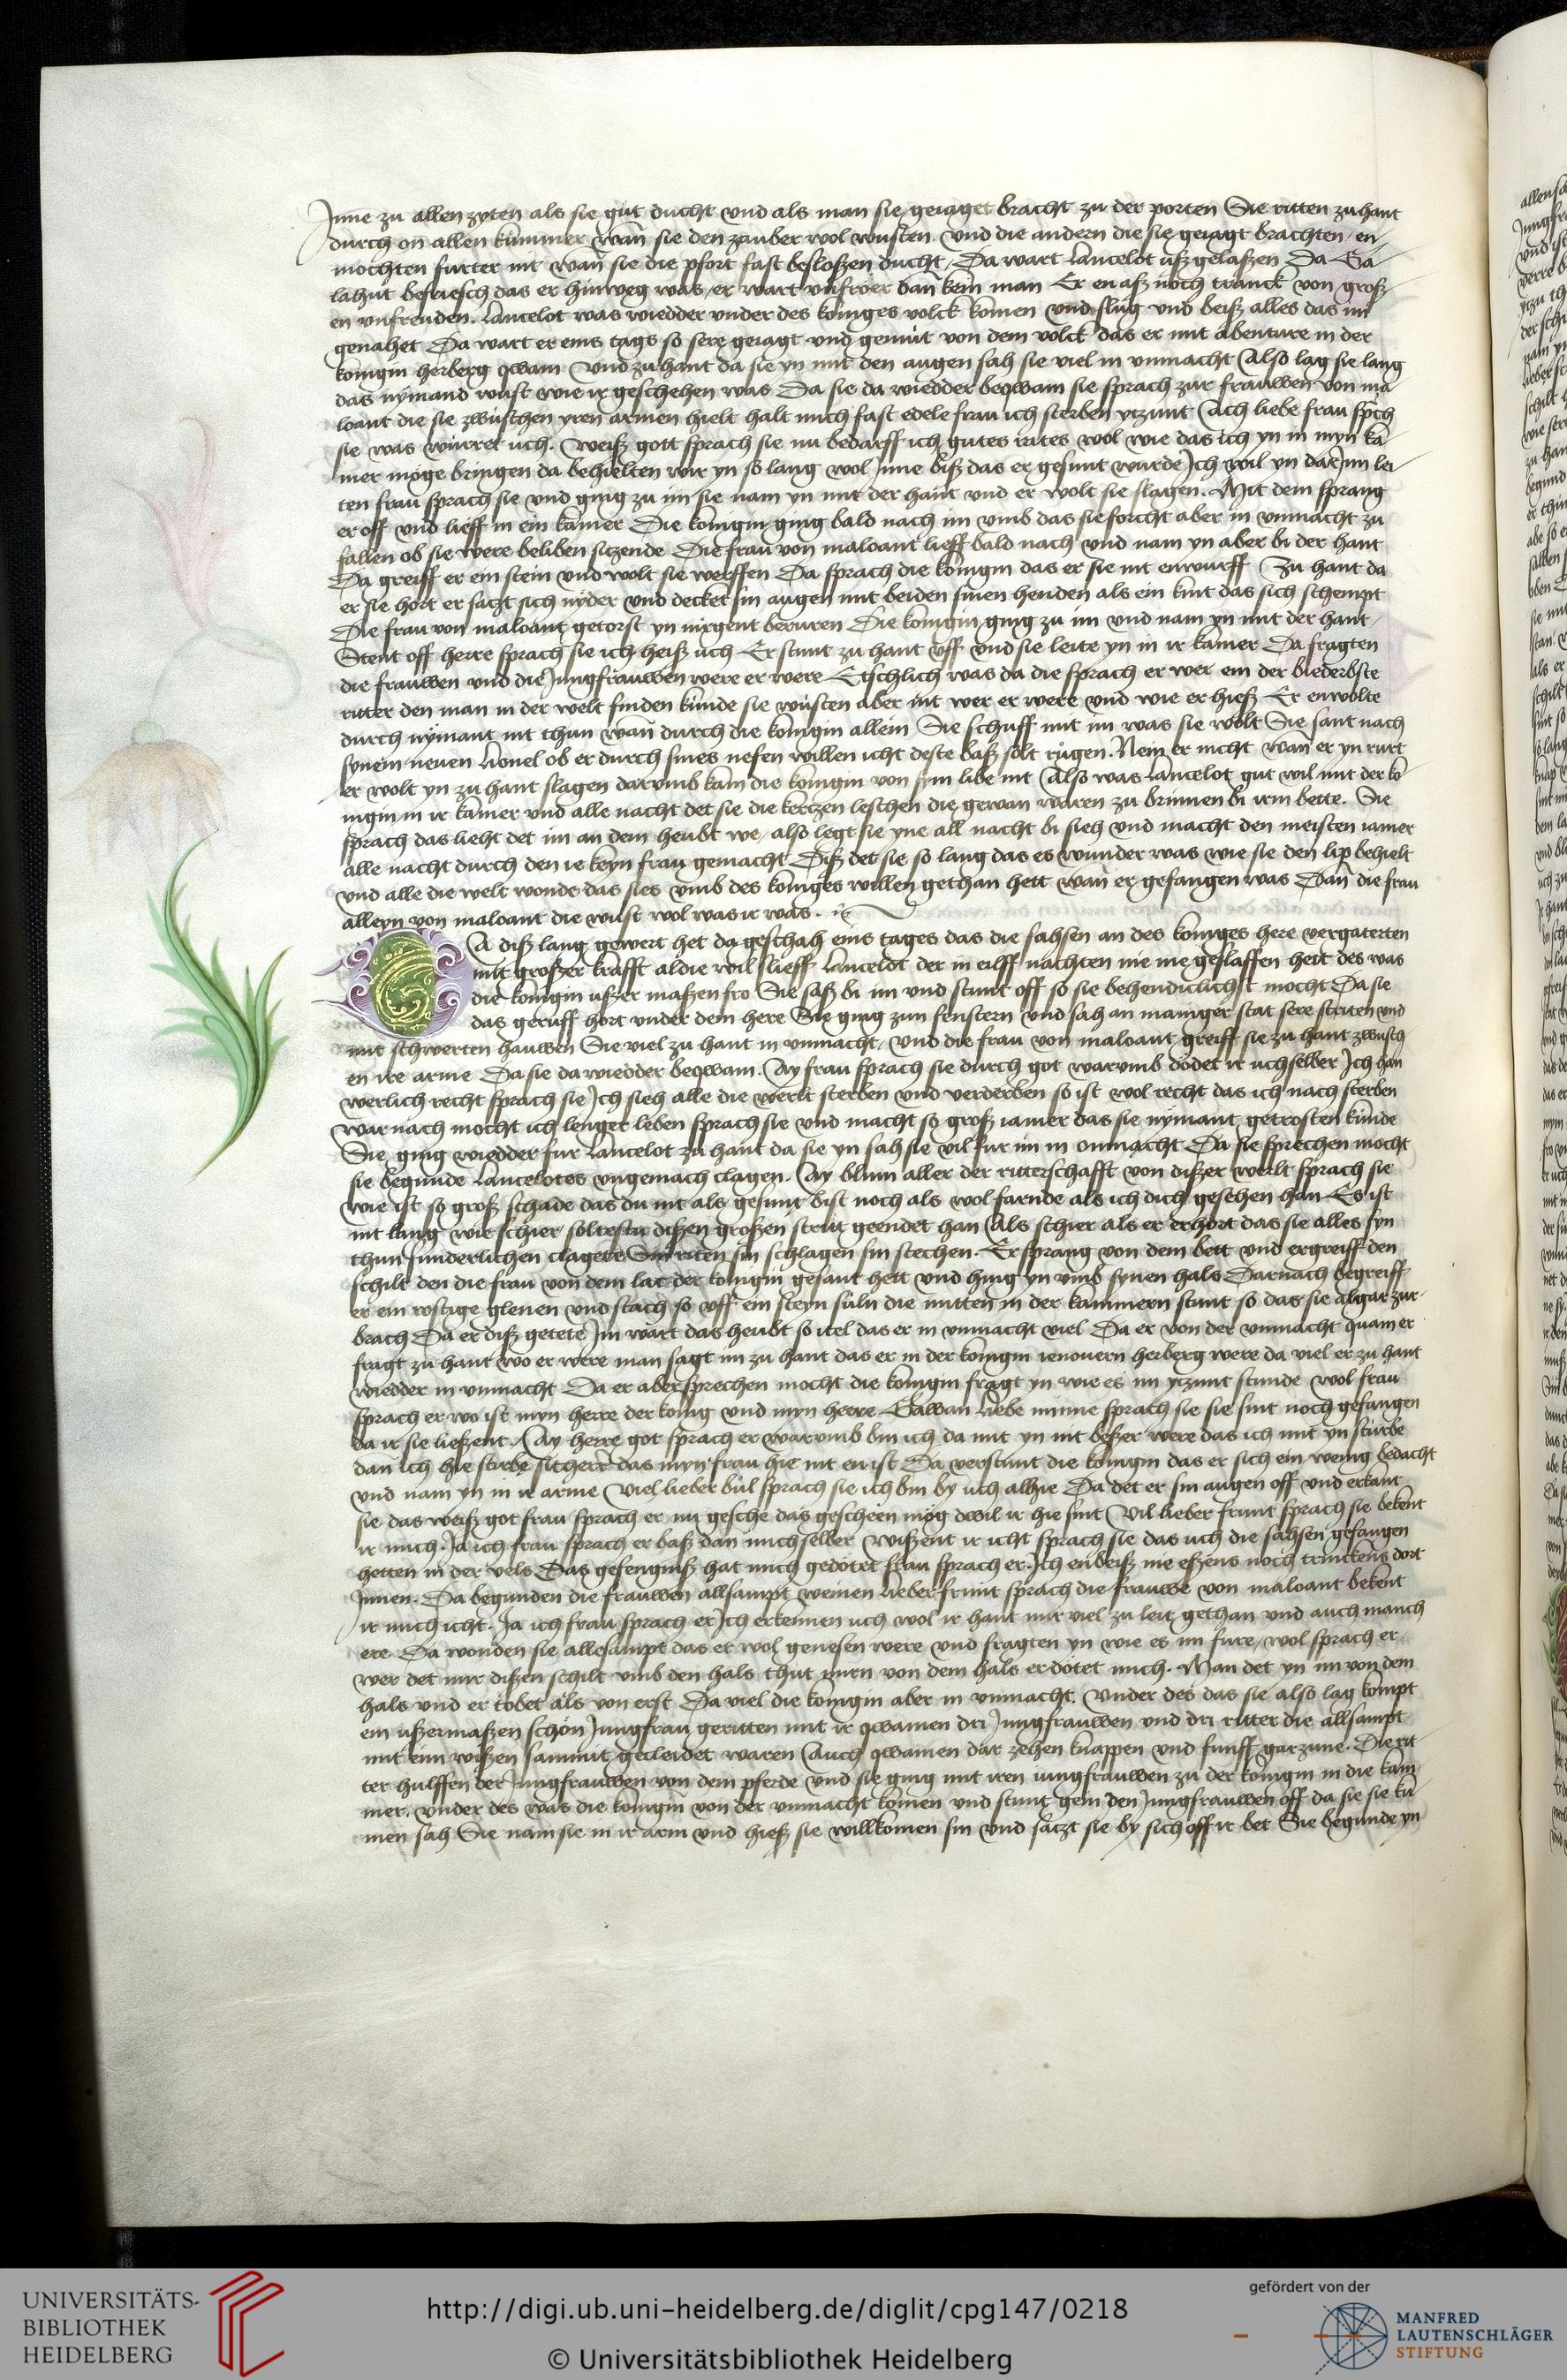 Jnne zu allen zyten als sie gut ducht vnd als man sie geiaget bracht zu der porten Sie ritten zuhant
durch on allen kummer wan̄ sie den zauber wol wusten vnd die andern die sie geiagt brachten en
mochten furter nit wan̄ sie die pfort fast besloßen ducht Da wart lancelot ußgelaßen Da Ga
lahut befriesch das er hinweg was er wart vnfröer dan̄ kein man Er en aß noch tranck von groß
en vnfreuden. lancelot was wiedder vnder des koniges volck komen vnd slug vnd beiß alles das im
genahet Da wart er eins tags so sere geiagt vnd gemüt von dem volck das er mit abenture in der
konigin herberg qwam vnd zu hant da sie yn mit den augen sah sie viel in vnmacht Also lag sie lang
das nymand wust wie ir geschehen was Da sie da wiedder beqwam sie sprach zur frauwen von ma
loant die sie zwuschen yren armen hielt halt mich fast edele frau ich sterben yczunt Ach liebe frau sp̄ch
sie was wirret uch. Weiß gott sprach sie nu bedarff ich gutes rates wol wie das ich yn in myn ka
mer möge bringen da behielten wir yn so lang wol Jnne biß das er gesunt wurde Jch wil yn dar Jnn lei
ten frau sprach sie vnd ging zu im sie nam yn mit der hant vnd er wolt sie slagen. Mit dem sprang
er off vnd lieff in ein kamer Die konigin ging bald nach im vmb das sie forcht aber in vnmacht zu
fallen ob sie were beliben siczende Die frau von maloant lieff bald nach vnd nam yn aber bi der hant
Da greiff er ein stein vnd wolt sie werffen Da sprach die konigin das er sie nit enwurff Zu hant da
er sie hort er saczt sich nyder vnd decket sin augen mit beiden sinen henden als ein kint das sich schempt
Die frau von maloant getorst yn nirgent beruren Die konigin ging zu im vnd nam yn mit der hant
Stent off herre sprach sie ich heiß uch Er stunt zu hant vff vnd sie leite yn in ir kamer Da fragten
die frauwen vnd die Jungfrauwen were er were Etschlich was da die sprach er wer ein der biederbste
ritter den man in der welt finden kunde sie wusten aber nit wer er were vnd wie er hieß Er enwolte
durch nymant nit thun wan̄ durch die konigin allein Sie schuff mit im was sie wolt Sie sant nach
synem neuen lionel ob er durch sines nefen willen icht deste baß solt rugen. Nein er nicht wan er yn rurt
er wolt yn zu hant slagen darvmb kam die konigin von sim libe nit Also was lancelot gut wil mit der ko
nigin in ir kamer vnd alle nacht det sie die kerczen leschen die gewon waren zu brinnen bi irm bette. Sie
sprach das lieht det im an dem heubt we, also legt sie yne all nacht bi sich vnd macht den meisten iamer
alle nacht durch den ie keyn frau gemacht Diß det sie so lang das es wunder was wie sie den lip behielt
vnd alle die welt wonde das sies vmb des koniges willen gethan hett wan̄ er gefangen was Dan̄ die frau
alleyn von maloant die wust wol was ir was.
DA diß lang gewert het da geschah eins tages das die sahsen an des koniges here vergaterten
mit großer krafft aldie wil slieff lancelot der in eilff nachten nie me geslaffen hett des was
die konigin ußer maßen fro Sie saß bi im vnd stunt off so sie behendiclichst mocht Da sie
das geruff hort vnder dem here Sie ging zun fenstern vnd sah an maniger stat sere striten vnd
mit schwerten hauwen Sie viel zu hant in vnmacht, vnd die frau von maloant greiff sie zu hant zwusch
en ire arme Da sie da wiedder beqwam. Ay frau sprach sie durch got warumb dödet ir uch selber Jch han
werlich recht sprach sie Jch sieh alle die werlt sterben vnd verderben so ist wol recht das ich nach sterben
war nach mocht ich lenger leben sprach sie vnd macht so groß iamer das sie nymant getrosten kunde
Sie ging wiedder fur lancelot zu hant da sie yn sah sie vil fur im in onmacht Da sie sprechen mocht
sie begunde lancelotes vngemach clagen. Ay blum aller der ritterschafft von dißer werlt sprach sie
wie ist so groß schade das du nit als gesunt bist noch als wol farnde als ich dich gesehen han Es ist
nit lang wie schier soltestu dißen großen strit geendet han Als schier als er erhort das sie alles syn
thun sunderlichen clagete Sin riten sin schlagen sin stechen. Er sprang von dem bett vnd ergreiff den
schilt den die frau von dem lac der konigin gesant hett vnd hing yn vmb synen hals Darnach begreiff
er ein rostige glenen vnd stach so vff ein steyn suln die mitten in der kammern stunt so das sie albgar zur
brach Da er diß getete Jm wart das heubt so itel das er in vnmacht viel Da er von der vnmacht quam er
fragt zu hant wo er were man sagt im zu hant das er in der konigin ienouern herberg were da viel er zu hant
wiedder in vnmacht Da er aber sprechen mocht die konigin fragt yn wie es im yczunt stunde wol frau
sprach er wo ist myn herre der konig vnd myn herre Gawan Liebe minne sprach sie sie sint noch gefangen
da ir sie ließent. Ay herre got sprach er warumb bin ich da mit yn nit beßer were das ich mit yn sturbe
dan ich hie sturbe sitherr das myn frau hie nit en ist Da verstunt die konigin das er sich ein wenig bedacht
vnd nam yn in ir arme viel lieber bul sprach sie ich bin by uch alhie Da det er sin augen off vnd erkant
sie das weiß got frau sprach er nu gesche das gescheen mög dwil ir hie sint Vil lieber frunt sprach sie bekent
ir mich. Ja ich frau sprach er baß dan mich selber Wißent ir icht sprach sie das uch die sahsen gefangen
hetten in der vels Das gefengniß hat mich gedötet frau sprach er. Jch enbeiß nie eßens noch trinckens dort
Jnnen. Da begunden die frauwen allsampt weinen Lieber frunt sprach die frauwe von maloant bekent
ir mich icht. Ja ich frau sprach er Jch erkennen uch wol ir hant mir viel zu leit gethan vnd auch manch
ere Da wonden sie allesampt das er wol genesen were vnd fragten yn wie es im fure, wol sprach er
wer det mir dißen schilt vmb den hals thut mirn von dem hals er dötet mich. Man det yn im von dem
hals vnd er tobet als von erst Da viel die konigin aber in vnmacht. Vnder des das sie also lag kompt
ein ußermaßen schön Jungfrau geritten mit ir qwamen dri Jungfrauwen vnd dri ritter die allsampt
mit eim wißen sammit gecleidet waren Auch qwamen dar zehen knappen vnd funff garzune. Die rit
ter hulffen der Jungfrauwen von dem pferde vnd sie ging mit iren iungfrauwen zu der konigin in die kam
mer. Vnder des was die konigin von der vnmacht komen vnd stunt gein den Jungfrauwen off da sie sie ku
men sah Sie nam sie in ir arm vnd hieß sie willkomen sin vnd saczt sie by sich off ir bet Sie begunde yn
UNIVERSITÄTS-
BIBLIOTHEK
HEIDELBERG
http://digi.ub.uni-heidelberg.de/diglit/cpg147/0218
© Universitätsbibliothek Heidelberg
gefördert von der
MANFRED
LAUTENSCHLÄGER
STIFTUNG